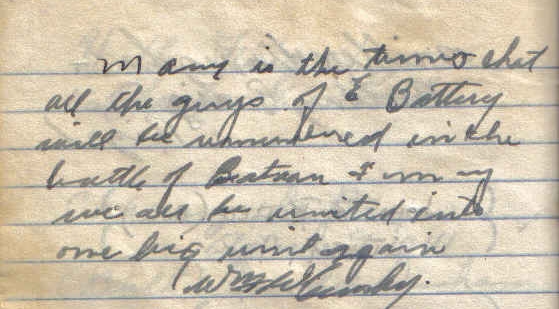 Many is the times that
all the guys of E Battery
will be remembered in the
battle of Bataan & may
we all be united into
one big unit again
Wm